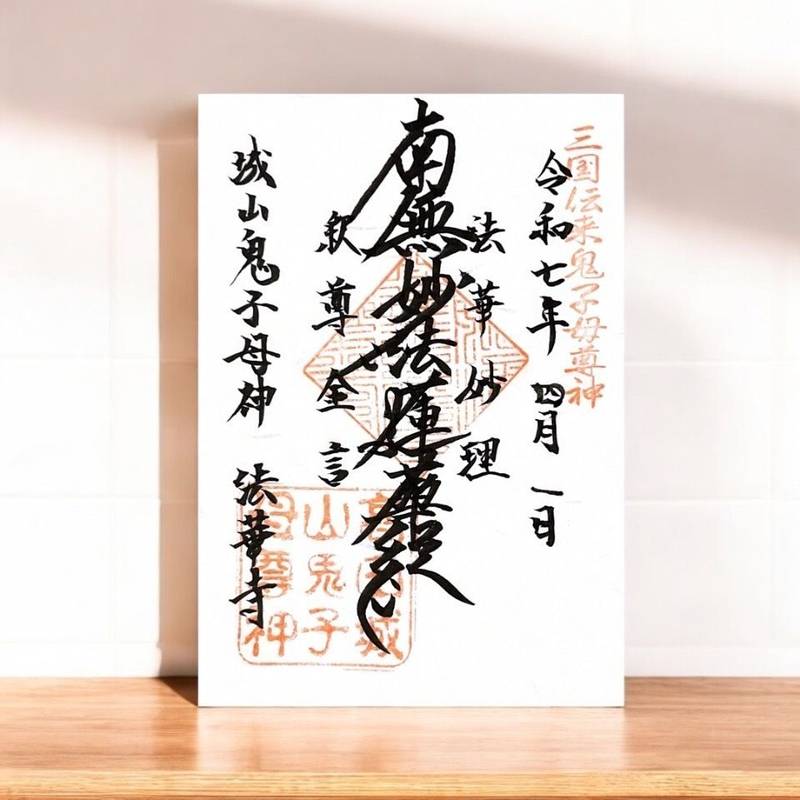 三国伝来鬼子母尊神
令和七年 四月 一日
法華妙理
南無妙法蓮華経
釈尊金言
城山鬼子母神 法華寺
城
山鬼子
母尊神